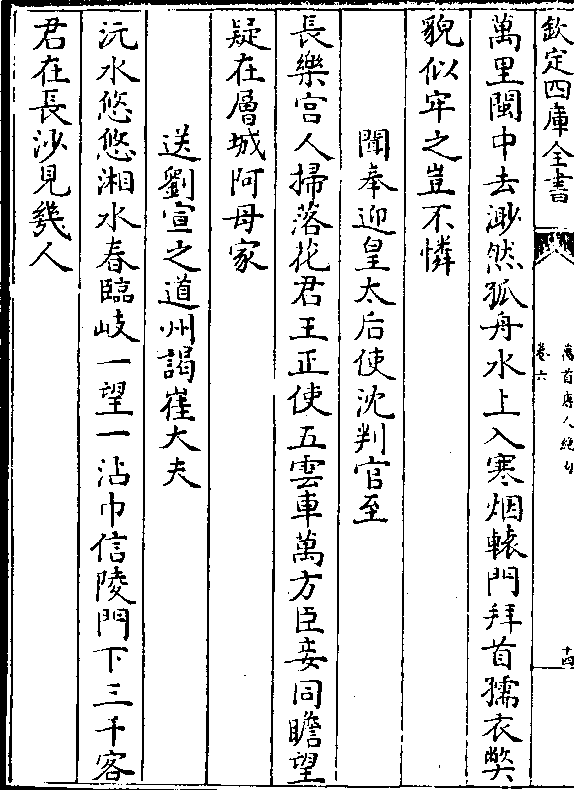 欽定四庫全書
萬首唐人絶句
卷六
十四
萬里閩中去渺然孤舟水上入寒烟轅門拜首孺衣獘
貌似牢之豈不憐
聞奉迎皇太后使沈判官至
長樂宫人掃落花君王正使五雲車萬方臣妾同瞻望
疑在層城阿母家
送劉宣之道州謁崔大夫
沅水悠悠湘水春臨岐一望一沾巾信陵門下三千客
君在長沙見㡬人